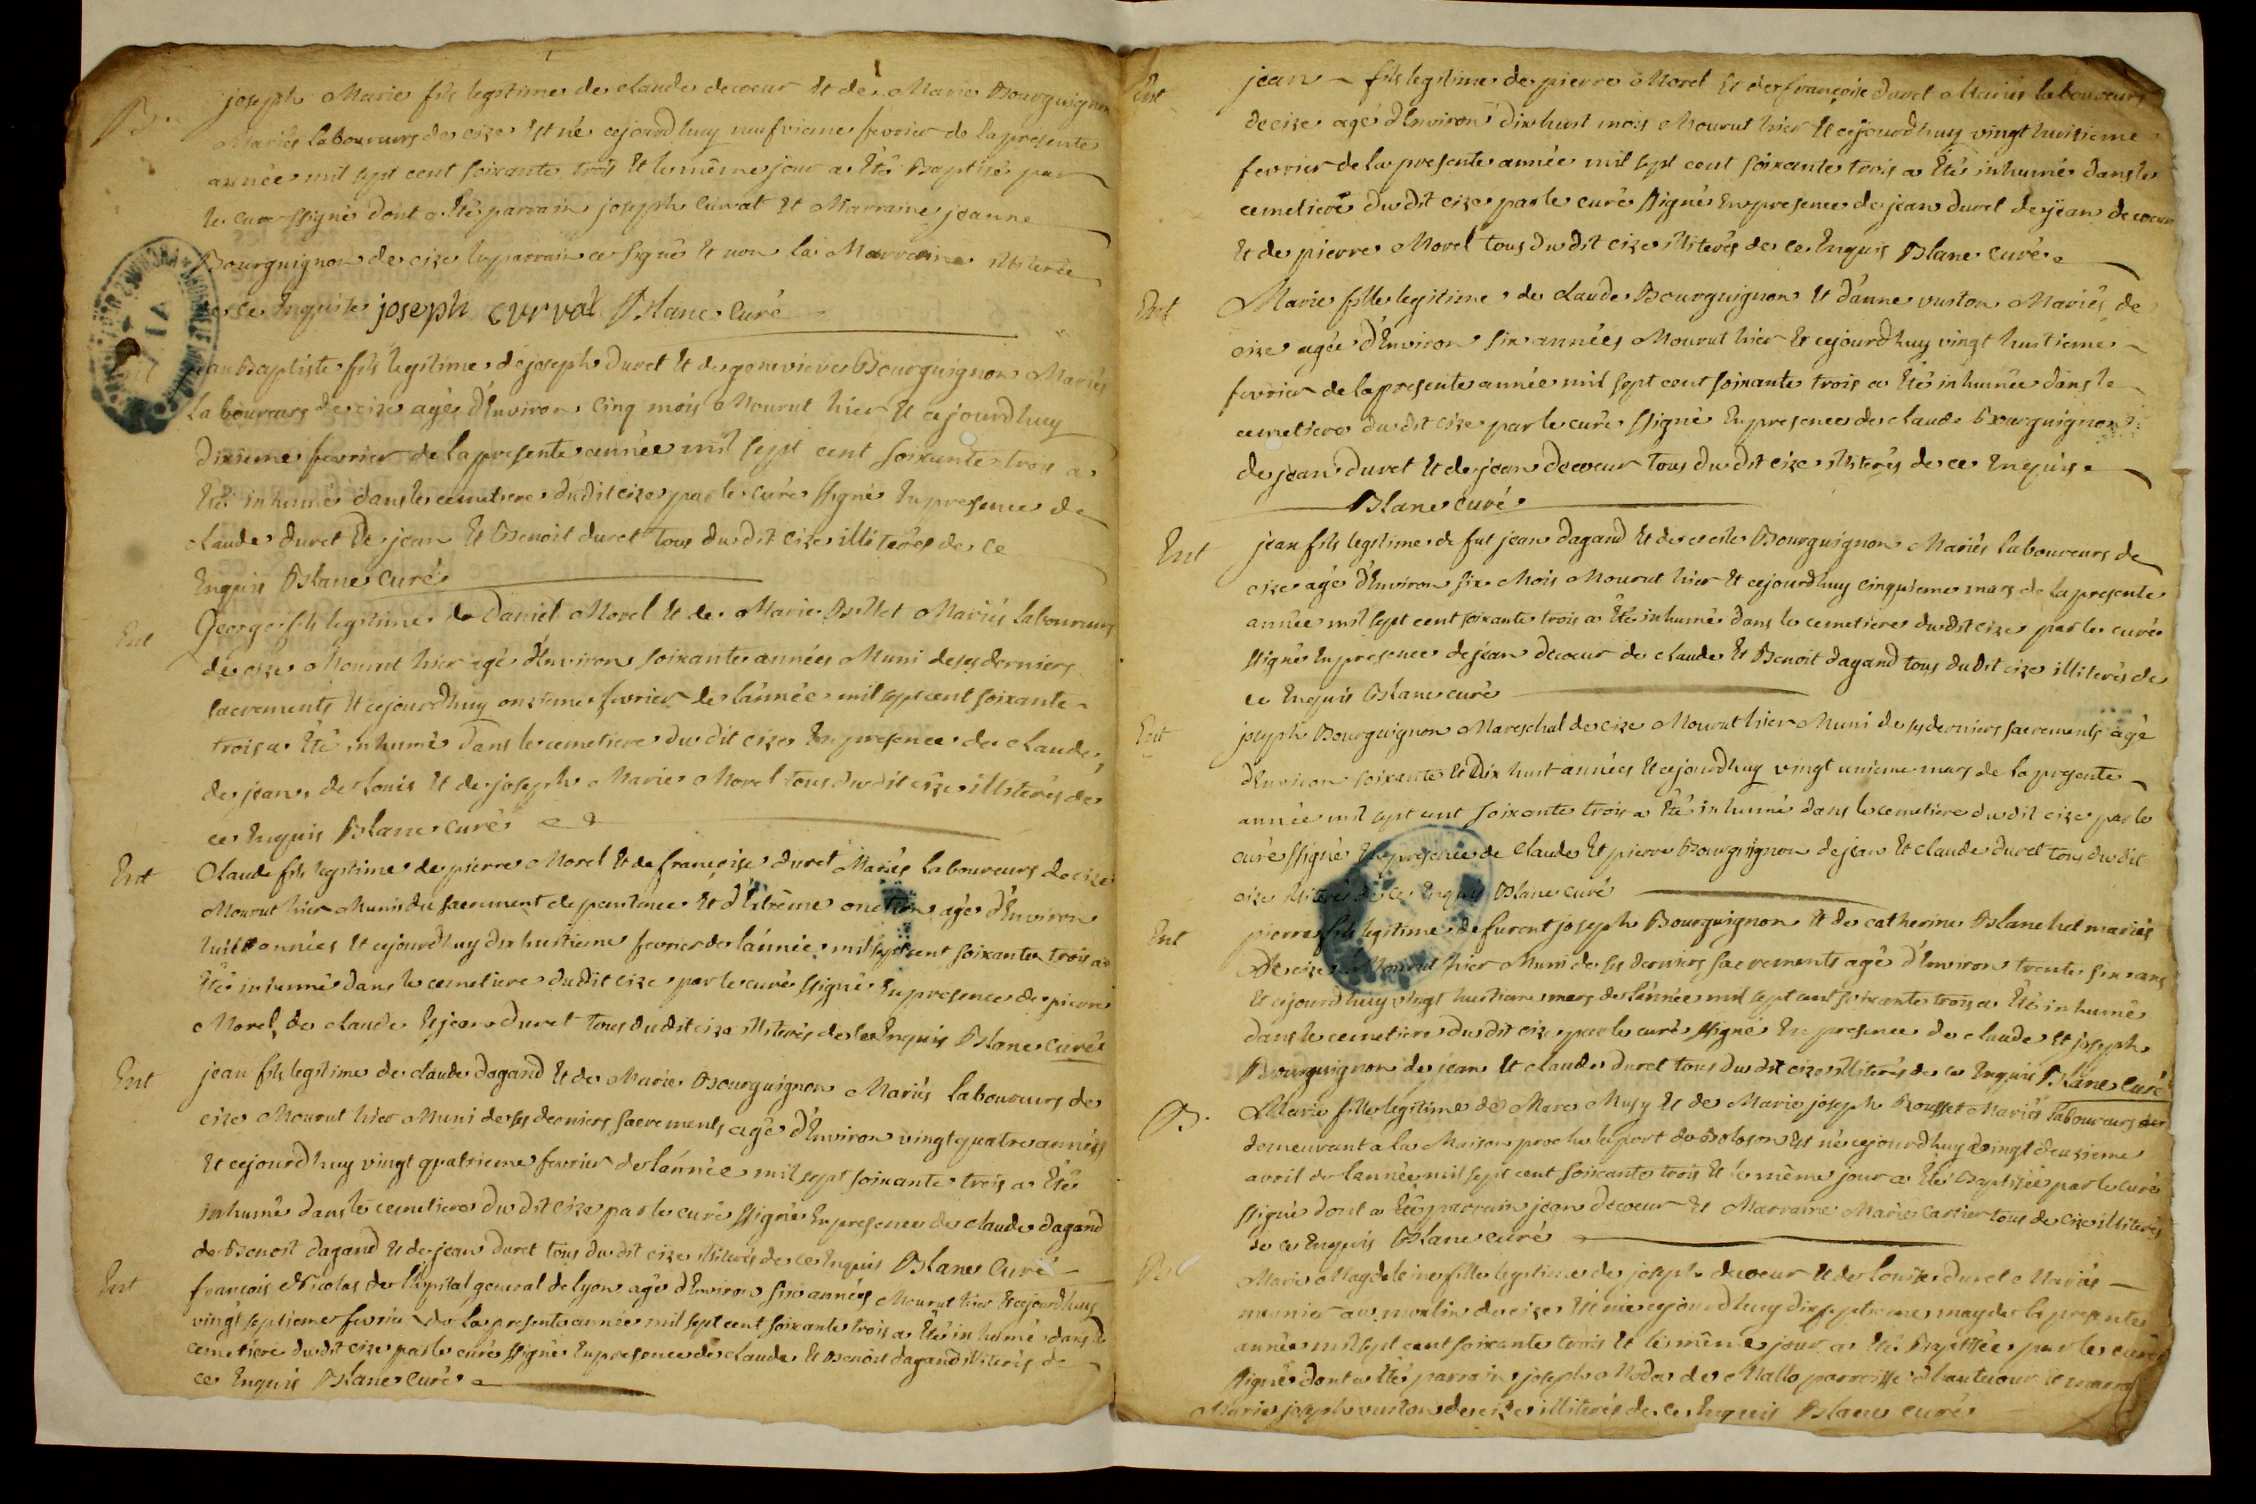 B.
joseph Marie fils legitime de claude decoeur Et de Marie Bourguignon
Mariés laboureurs de cize Est né cejourdhuy neufvieme fevrier de la presente
année mil sept cent soixante trois Et le même jour a Eté Baptisé par
le curé ssigné dont a Eté parrain joseph curvat Et Marraine jeanne
Bourguignon de cize le parrain a signé Et non la Marraine illiterée
de ce Enquise joseph curval Blanc Curé
jean Baptiste fils legitime de joseph duret Et de genevieve Bourguignon Mariés
laboureurs de cize agé d'Environ cinq mois Mourut hier Et cejourdhuy
dixieme fevrier de la presente année mil sept cent soixante trois a
Eté inhumé dans le cemetiere dudit cize par le curé ssigné En presence de
claude duret de jean Et Benoit duret tous dudit cize illiterés de ce
Enquis Blanc Curé
Ent
George fils legitime de Daniel Morel Et de Marie Billet Mariés laboureurs
de cize Mourut hier agé d'Environ soixante années Muni de ses derniers
sacrements Et cejourdhuy onzieme fevrier de l'année mil sept cent soixante
trois a Eté inhumé dans le cemetiere dudit cize En presence de claude,
de jean, de Louis Et de joseph Marie Morel tous dudit cize illiterés de
ce Enquis Blanc curé
Ent
Claude fils legitime de pierre Morel Et de françoise duret Mariés laboureurs de cize
Mourut hier Muni du sacrement de penitence Et d'Extrême onction agé d'Environ
huit années Et cejourdhuy dix huitieme fevrier de l'année mil sept cent soixante trois a
Eté inhumé dans le cemetiere dudit cize par le curé ssigné En presence de pierre
Morel, de claude Et jean duret tous dudit cize illiterés de ce Enquis Blanc curé
Ent
jean fils legitime de claude dagand Et de Marie Bourguignon Mariés laboureurs de
cize Mourut hier Muni de ses derniers sacrements agé d'Environ vingt quatre années
Et cejourdhuy vingt quatrieme fevrier de l'année mil sept soixante trois a Eté
inhumé dans le cemetiere dudit cize par le curé ssigné En presence de claude dagand
de Benoit dagand Et de jean duret tous dudit cize illiterés de ce Enquis Blanc Curé
Ent
françois Nicolas de l'hôpital general de lyon agé d'Environ six années Mourut hier Et cejourdhuy
vingt septieme fevrier de la presente année mil sept cent soixante trois a Eté inhumé dans le
cemetiere dudit cize par le curé ssigné En presence de claude Et Benoit dagand illiterés de
ce Enquis Blanc curé
Ent
jean fils legitime de pierre Morel Et de françoise duret Mariés laboureurs
de cize agé d'Environ dix huit mois Mourut hier Et cejourdhuy vingt huitieme
fevrier de la presente année mil sept cent soixante trois a Eté inhumé dans le
cemetiere dudit cize par le curé ssigné En presence de jean duret de jean decoeur
Et de pierre Morel tous dudit cize illiterés de ce Enquis Blanc curé
Ent
Marie fille legitime de claude Bourguignon Et d'anne vuiton Mariés de
cize agée d'Environ six années Mourut hier Et cejourdhuy vingt huitieme
fevrier de la presente année mil sept cent soixante trois a Eté inhumée dans le
cemetiere dudit cize par le curé ssigné En presence de claude Bourguignon
de jean duret Et de jean decoeur tous dudit cize illiterés de ce Enquis
Blanc curé
Ent
jean fils legitime de fut jean dagand Et de cecile Bourguignon Mariés laboureurs de
cize agé d'Environ six Mois Mourut hier Et cejourdhuy cinquieme mars de la presente
année mil sept cent soixante trois a Eté inhumé dans le cemetiere dudit cize par le curé
ssigné En presence de jean decoeur de claude Et Benoit dagand tous dudit cize illiterés de
ce Enquis Blanc curé
Ent
joseph Bourguignon Mareschal de cize Mourut hier Muni de ses derniers sacrements agé
d'Environ soixante Et dix huit années Et cejourdhuy vingt unieme mars de la presente
année mil sept cent soixante trois a Eté inhumé dans le cemetiere dudit cize par le
curé ssigné En presence de claude Et pierre Bourguignon de jean Et claude duret tous dudit
cize illiterés de ce Enquis Blanc curé
Ent
pierre fils legitime de furent joseph Bourguignon Et de catherine Blanchet mariés
de cize Mourut hier Muni de ses derniers sacrements agé d'Environ trente six ans
Et cejourdhuy vingt huitieme mars de l'année mil sept cent soixante trois a Eté inhumé
dans le cemetiere dudit cize par le curé ssigné En presence de claude Et joseph
Bourguignon de jean Et claude duret tous dudit cize illiterés de ce Enquis Blanc Curé
B.
Marie fille legitime de Marc Musy Et de Marie joseph Rousset Mariés laboureurs
demeurant a la Maison proche le port de Boloson Est née cejourdhuy vingt deuxieme
avril de l'année mil sept cent soixante trois Et le même jour a Eté Baptisée par le curé
ssigné dont a Eté parrain jean decoeur Et Marraine Marie cartier tous de cize illiterés
de ce Enquis Blanc curé
B
Marie Magdeleine fille legitime de joseph decoeur Et de louise duret Mariés
meunier au moulin de cize Est née cejourdhuy dix septieme may de la presente
année mil sept cent soixante trois Et le même jour a Eté Baptisée par le curé
ssigné dont a Eté parrain joseph de paroisse Et
Marie joseph vuiton de cize illiterés de ce Enquis Blanc curé